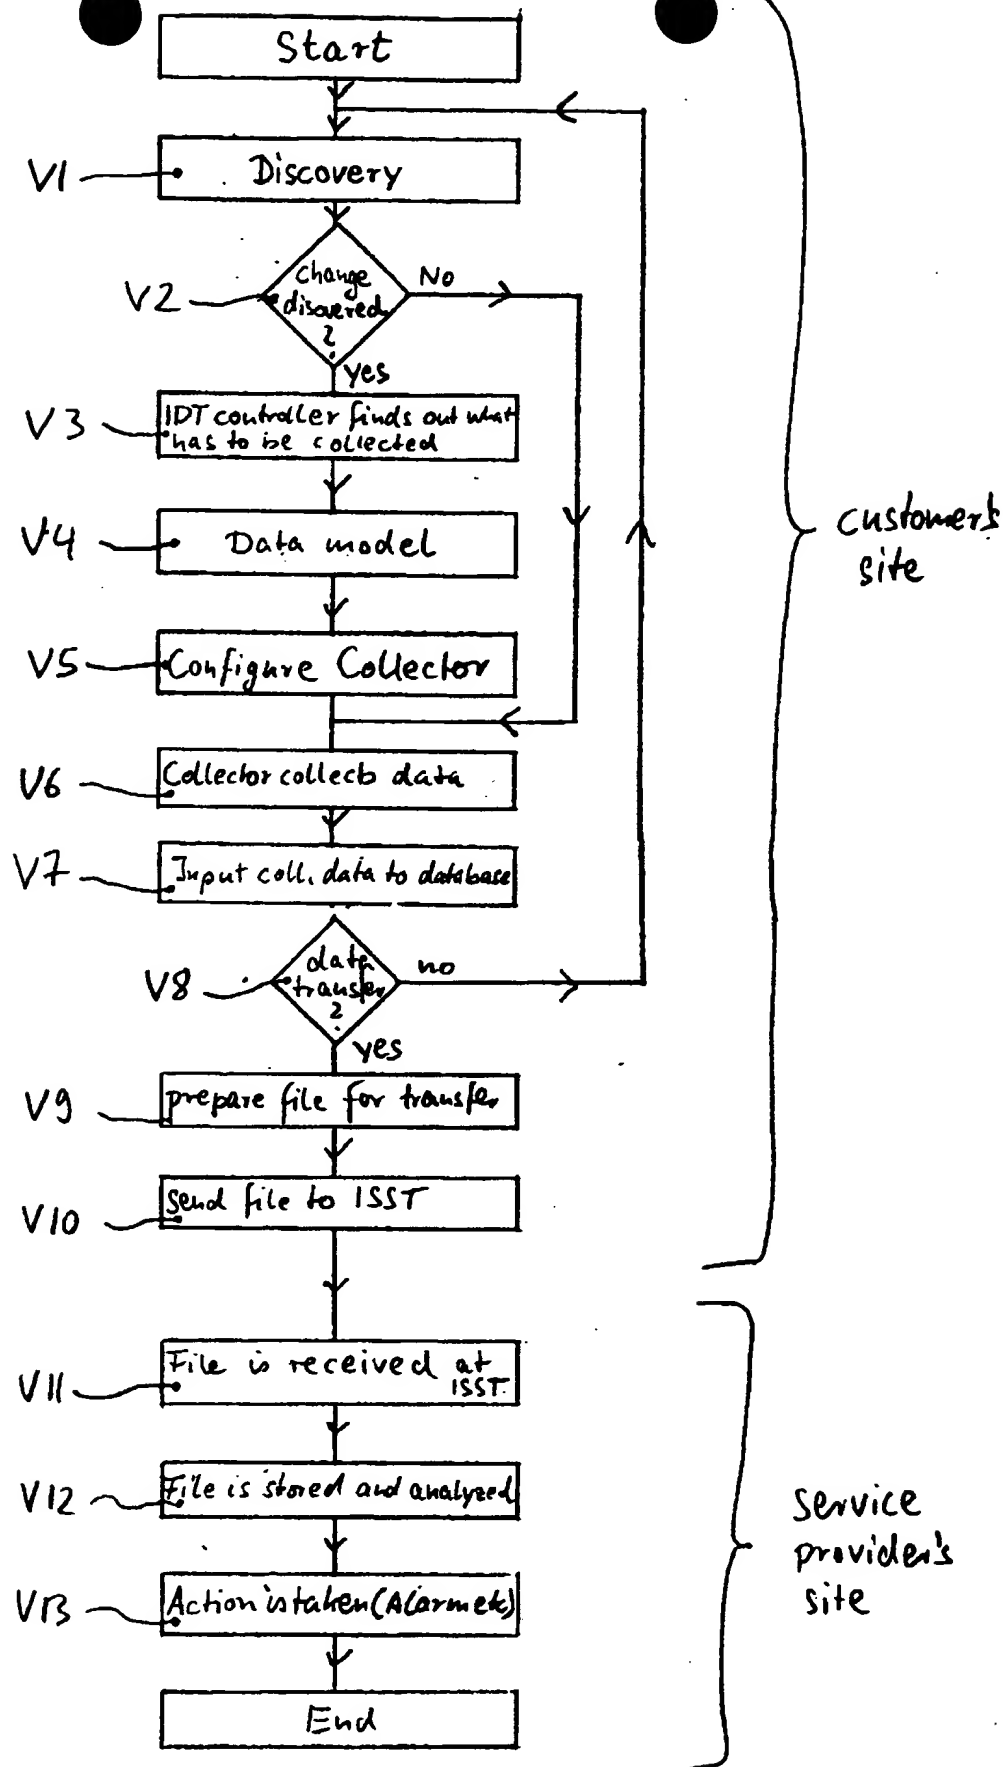 Start
V1
Discovery
V2
change
disovered
?
No
yes
V3
IDT controller finds out what
has to be collected
customer's
site
V4
Data model
V5
Configure Collector
V6
Collector collects data
V7
Input coll. data to database
V8
data
transfer
?
no
yes
V9
prepare file for transfer
V10
send file to ISST
V11
File is received at
ISST.
V12
File is stored and analyzed
service
provider's
site
V13
Action is taken (Alarm etc)
End